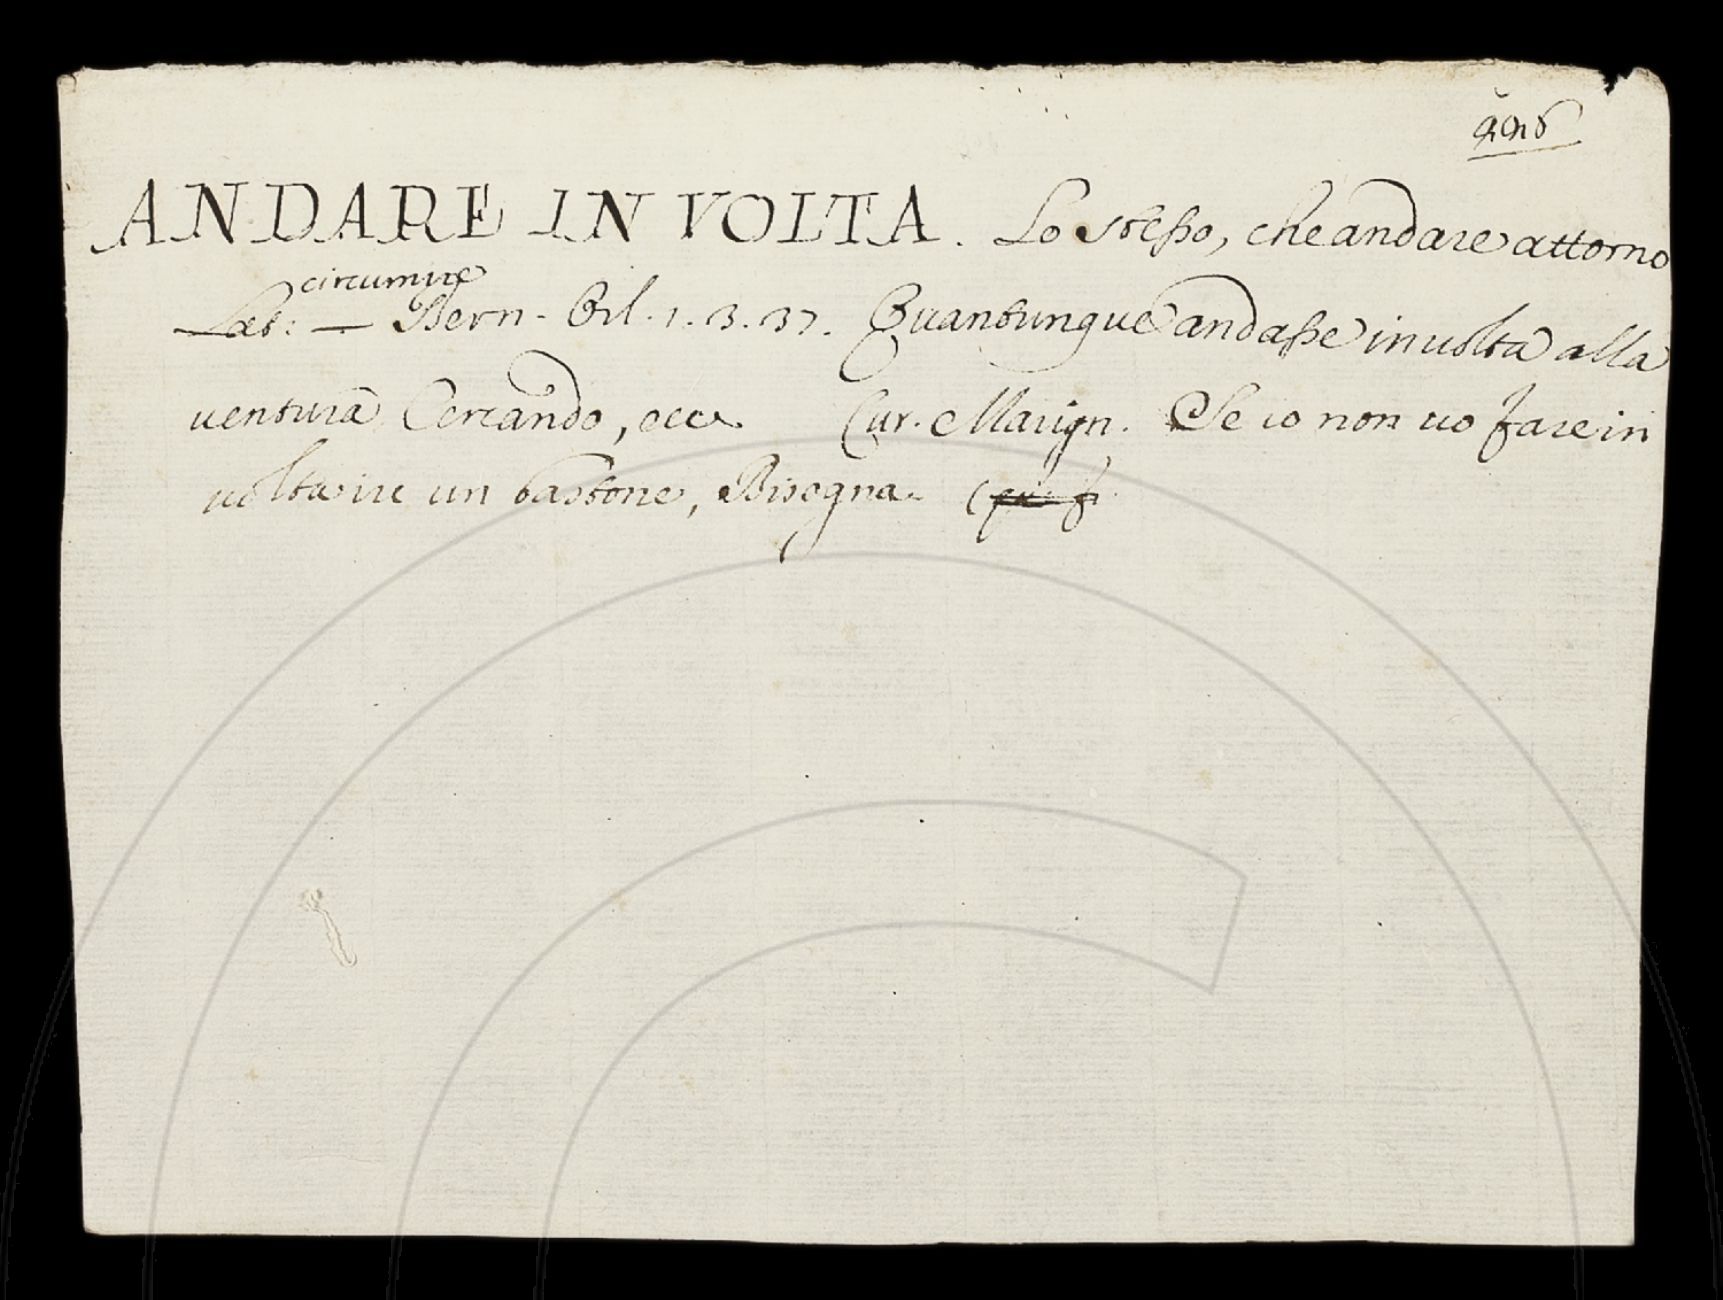 ANDARE IN VOLTA. Lo stesso, che andare attorno
circumire
Lat: — Bern. Orl. 1. 3. 37. Quantunque andasse in uolta alla
uentura Cercando, ecc. Cur. Marign. Se io non uo fare in
uolta ire un bastone, Bisogna.